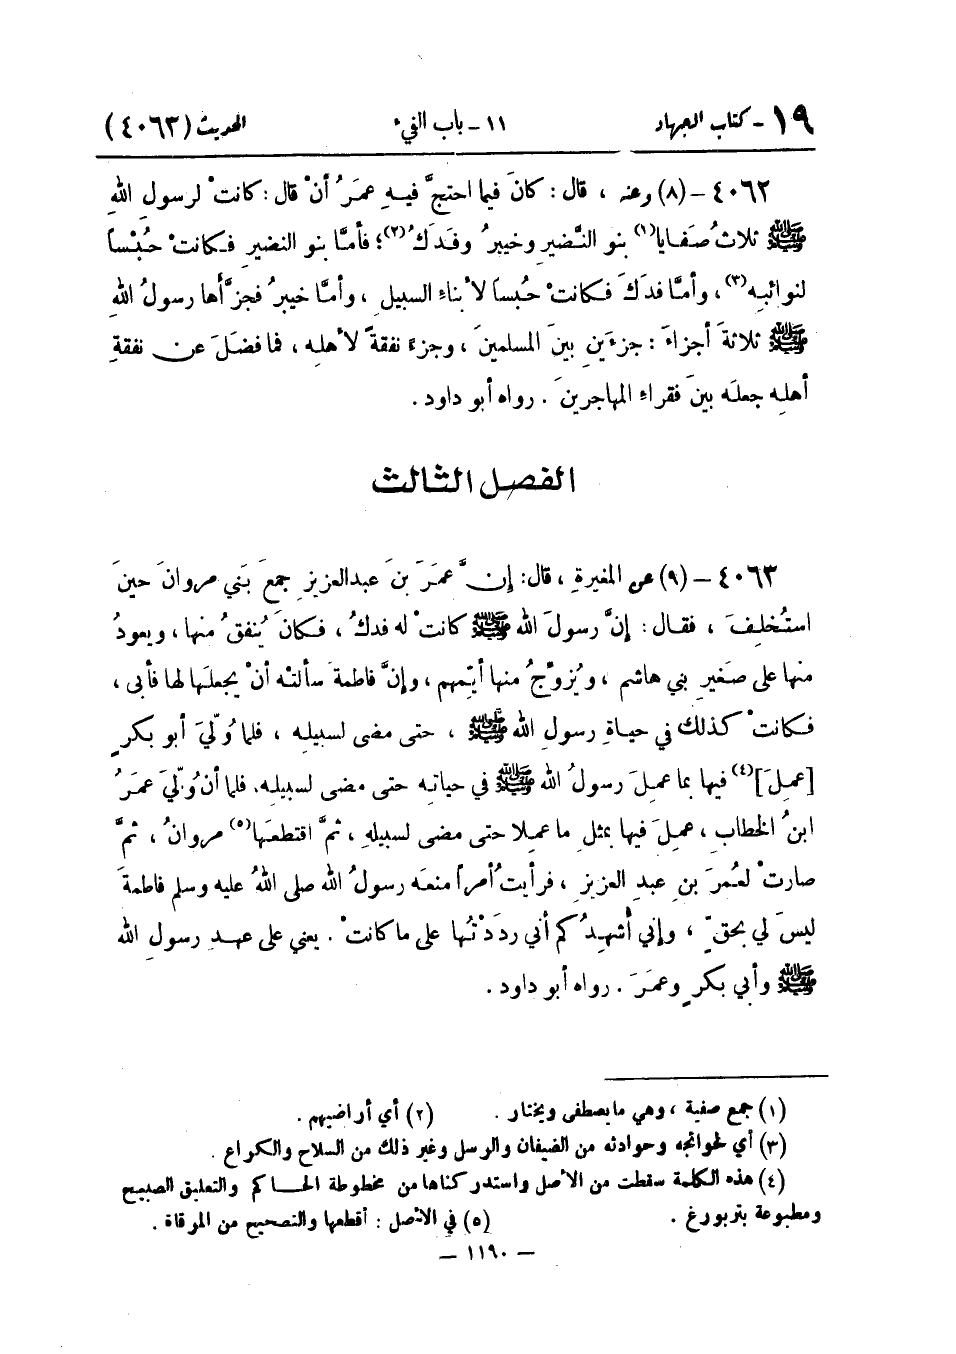 ١٩ - كتاب الجهاد ١١ - باب الفيء الحديث (٤٠٦٣)
٤٠٦٢ - (٨) وعنه ، قال : كانَ فيما احتجَّ فيهِ عمَرُ أنْ قال : كانتْ لرسولِ اللهِ
ﷺ ثلاثُ صَفَايا(١) بنو النَّضيرِ وخيبرُ وفَدَكُ(٢)؛ فأمَّا بنو النضيرِ فكانتْ حُبْساً
لنوائبِه(٣)، وأمَّا فدَكُ فكانتْ حُبساً لأبناءِ السبيلِ ، وأمَّا خيبرُ فجزَّأها رسولُ اللهِ
ﷺ ثلاثةَ أجزاءَ : جزءَينِ بينَ المسلمينَ ، وجزءَ نفقةً لأهلِه ، فما فضَلَ عن نفقةِ
أهلِه جعلَه بينَ فقراءِ المهاجرينَ . رواه أبو داود .
الفصل الثالث
٤٠٦٣ - (٩) عن المغيرةِ ، قال: إنَّ عمَرَ بنَ عبدالعزيزِ جمعَ بَني مروانَ حينَ
استُخلِفَ ، فقال : إنَّ رسولَ الله ﷺ كانتْ له فدكُ ، فكانَ يُنفقُ منها ، ويعودُ
منها على صَغيرِ بني هاشم ، ويُزوِّجُ منها أيّمهم ، وإنَّ فاطمةَ سألتْه أنْ يجعلَها لها فأبى ،
فكانتْ كذلك في حياةِ رسولِ اللهِ ﷺ ، حتى مضى لسبيلِه ، فلما وُلّيَ أبو بكرٍ
[عمِلَ](٤) فيها بما عمِلَ رسولُ الله ﷺ في حياتِه حتى مضى لسبيلِه. فلما أن وُلّيَ عمَرُ
ابنُ الخطابِ ، عمِلَ فيها بمثلِ ما عمِلا حتى مضى لسبيلهِ ، ثمَّ اقتطعَها(٥) مروانُ ، ثمَّ
صارتْ لعُمرَ بنِ عبدِ العزيزِ ، فرأيتُ أمراً منعَه رسولُ اللهِ صلى اللهُ عليه وسلم فاطمةَ
ليسَ لي بحقٍّ ، وإني أُشهِدُكم أني ردَدْتُها على ما كانتْ . يعني على عهدِ رسولِ الله
ﷺ وأبي بكرٍ وعمَرَ . رواه أبو داود .
(١) جمع صفية ، وهي ما يصطفى ويختار . (٢) أي أراضيهم .
(٣) أي لحوائجه وحوادثه من الضيفان والرسل وغير ذلك من السلاح والكراع .
(٤) هذه الكلمة سقطت من الأصل واستدركناها من مخطوطة الحاكم والتعليق الصبيح
ومطبوعة بتربورغ . (٥) في الأصل : أقطعها والتصحيح من المرقاة .
— ١١٩٠ —